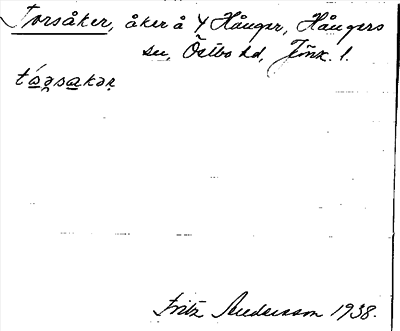 Torsåker, åker å Y Hånger, Hångers
sn, Östbo hd, Jönk. l.
Fritz Andersson 1938.